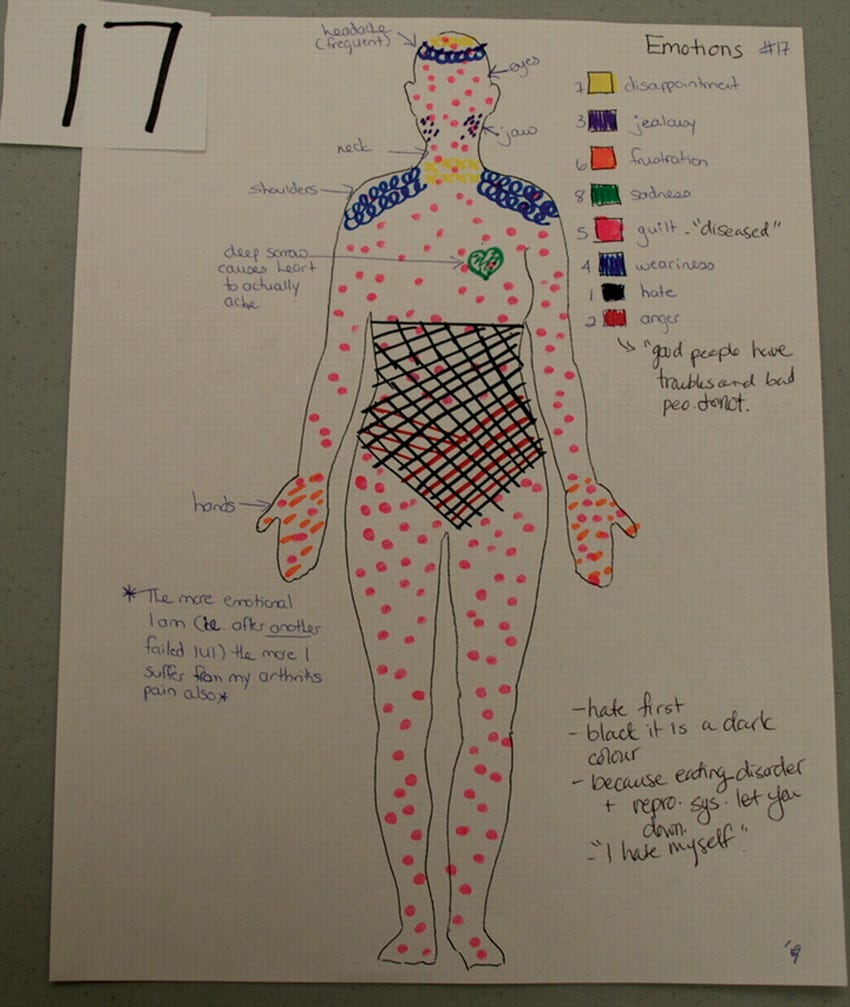 17
headache
(frequent)
Emotions #17
eyes
7 disappointment
3 jealousy
jaw
neck
6 frustration
shoulders
8 sadness
5 guilt - "diseased"
deep sorrow
causes heart
to actually
ache
4 weariness
1 hate
2 anger
"good people have
troubles and bad
peo. do not.
hands
* The more emotional
I am (ie. after another
failed IUI) the more I
suffer from my arthritis
pain also *
- hate first
- black it is a dark
colour
- because eating disorder
+ repro. sys. let you
down.
- "I hate myself"